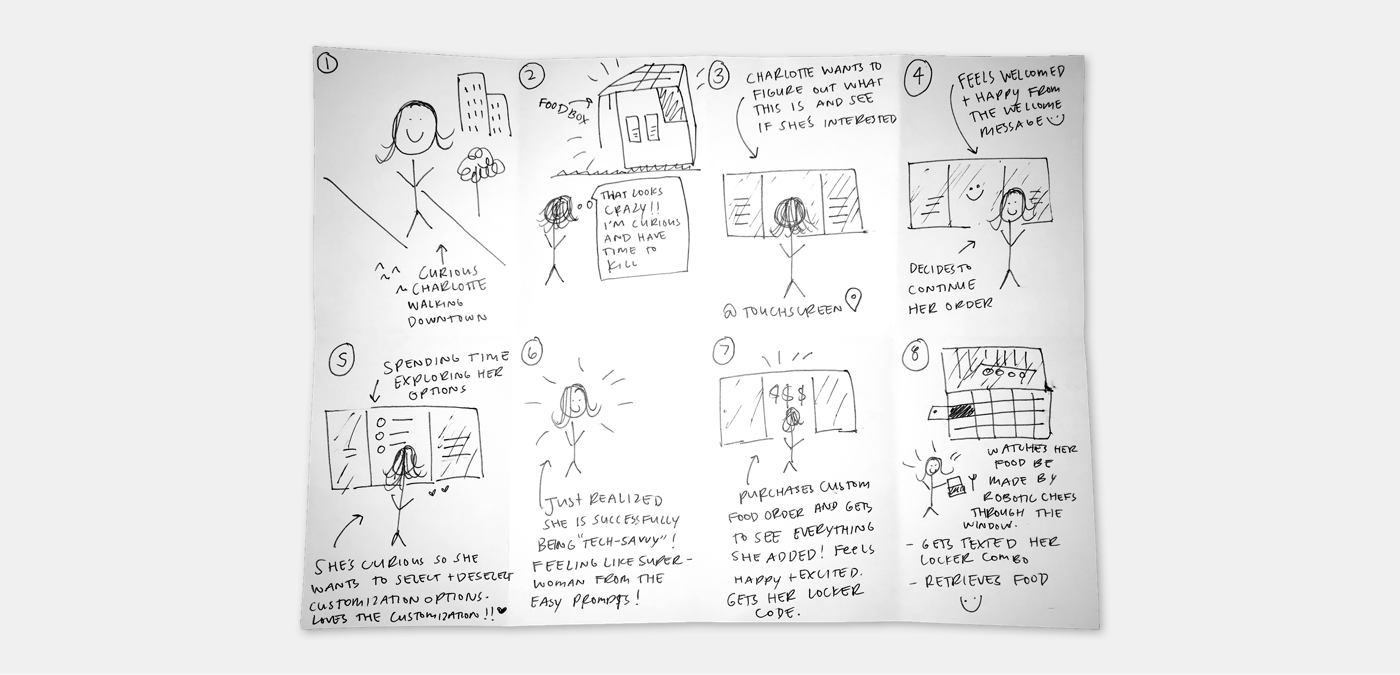 1
CURIOUS
CHARLOTTE
WALKING
DOWNTOWN
2
FOOD BOX
THAT LOOKS
CRAZY!!
I'M CURIOUS
AND HAVE
TIME TO
KILL
3
CHARLOTTE WANTS TO
FIGURE OUT WHAT
THIS IS AND SEE
IF SHE'S INTERESTED
@ TOUCHSCREEN
4
FEELS WELCOMED
+ HAPPY FROM
THE WELCOME
MESSAGE
DECIDES TO
CONTINUE
HER ORDER
5
SPENDING TIME
EXPLORING HER
OPTIONS
SHE'S CURIOUS SO SHE
WANTS TO SELECT + DESELECT
CUSTOMIZATION OPTIONS.
LOVES THE CUSTOMIZATION!!
6
JUST REALIZED
SHE IS SUCCESSFULLY
BEING "TECH-SAVVY"!
FEELING LIKE SUPER-
WOMAN FROM THE
EASY PROMPTS!
7
$$$
PURCHASES CUSTOM
FOOD ORDER AND GETS
TO SEE EVERYTHING
SHE ADDED! FEELS
HAPPY + EXCITED.
GETS HER LOCKER
CODE.
8
WATCHES HER
FOOD BE
MADE BY
ROBOTIC CHEFS
THROUGH THE
WINDOW.
- GETS TEXTED HER
LOCKER COMBO
- RETRIEVES FOOD